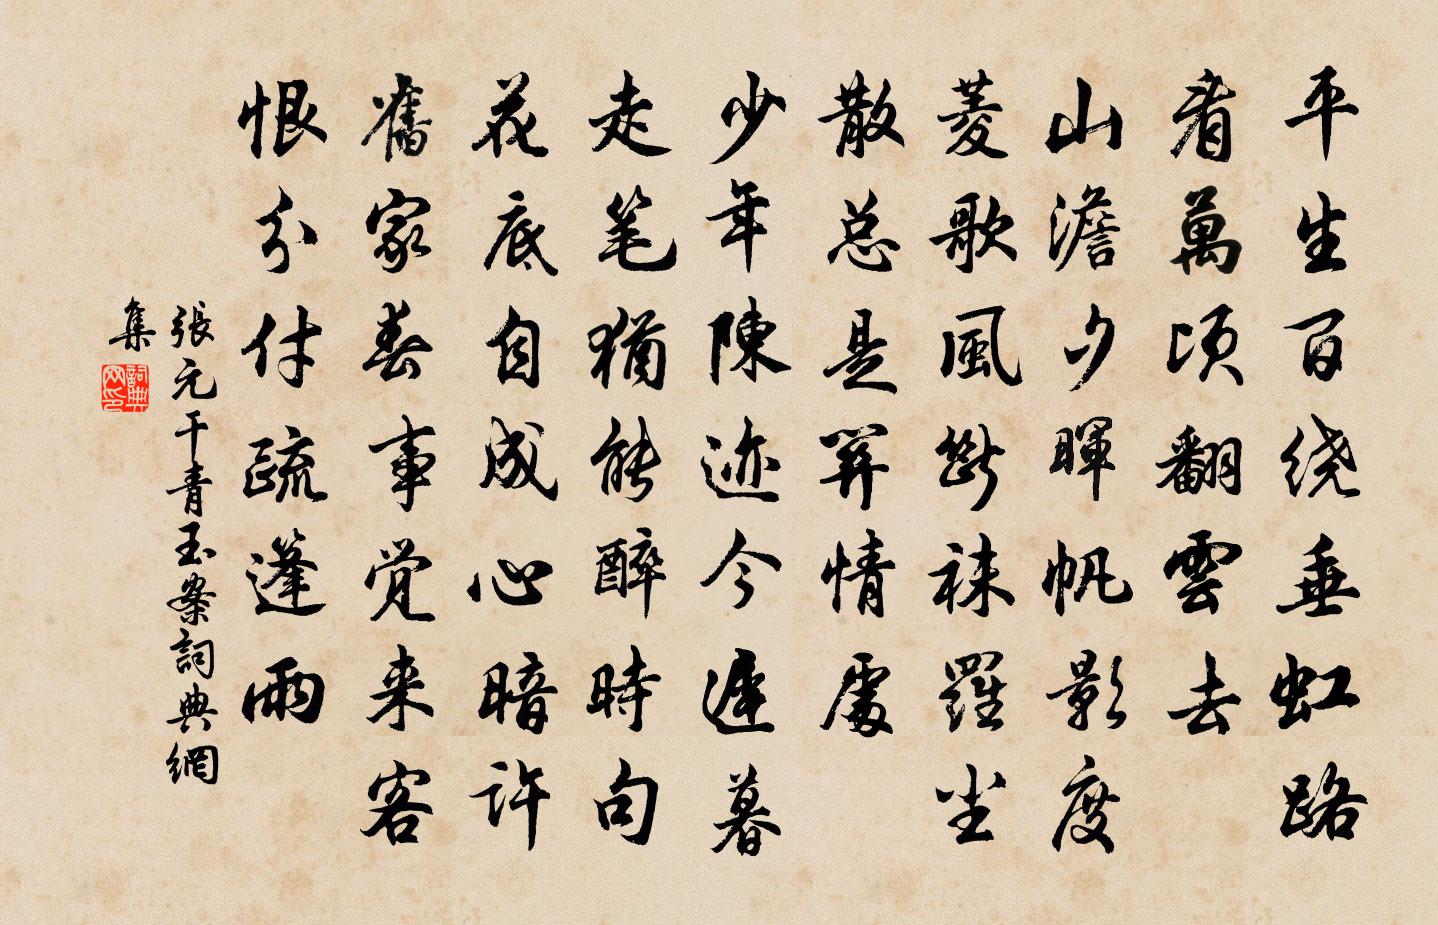 平生百绕垂虹路
看萬顷翻雲去
山澹夕暉帆影度
菱歌風断袜羅尘
散总是関情處
少年陳迹今遲暮
走笔猶能醉時句
花底目成心暗许
舊家春事觉来客
恨分付疏篷雨
張元干青玉案詞典網
集
詞典网印